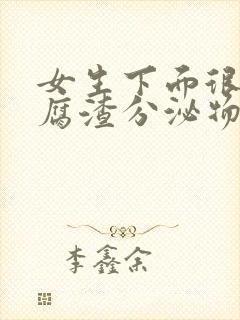 女生下面很
腐渣分泌物
李鑫余